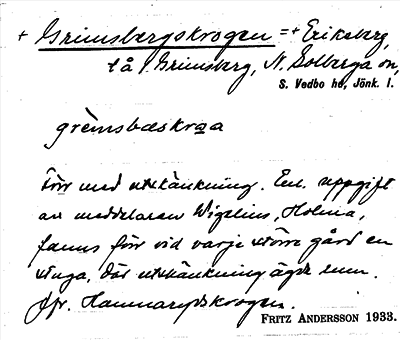 + Grimsbergskrogen = + Eriksberg,
t å / Grimsberg, N. Solberga sn,
S. Vedbo hd, Jönk. l.
grèmsbæskroa
Förr med utskänkning. Enl. uppgift
av meddelaren Wigelius, Holma,
fanns förr vid varje större gård en
stuga, där utskänkning ägde rum.
Jfr. Hammarydskrogen.
FRITZ ANDERSSON 1933.